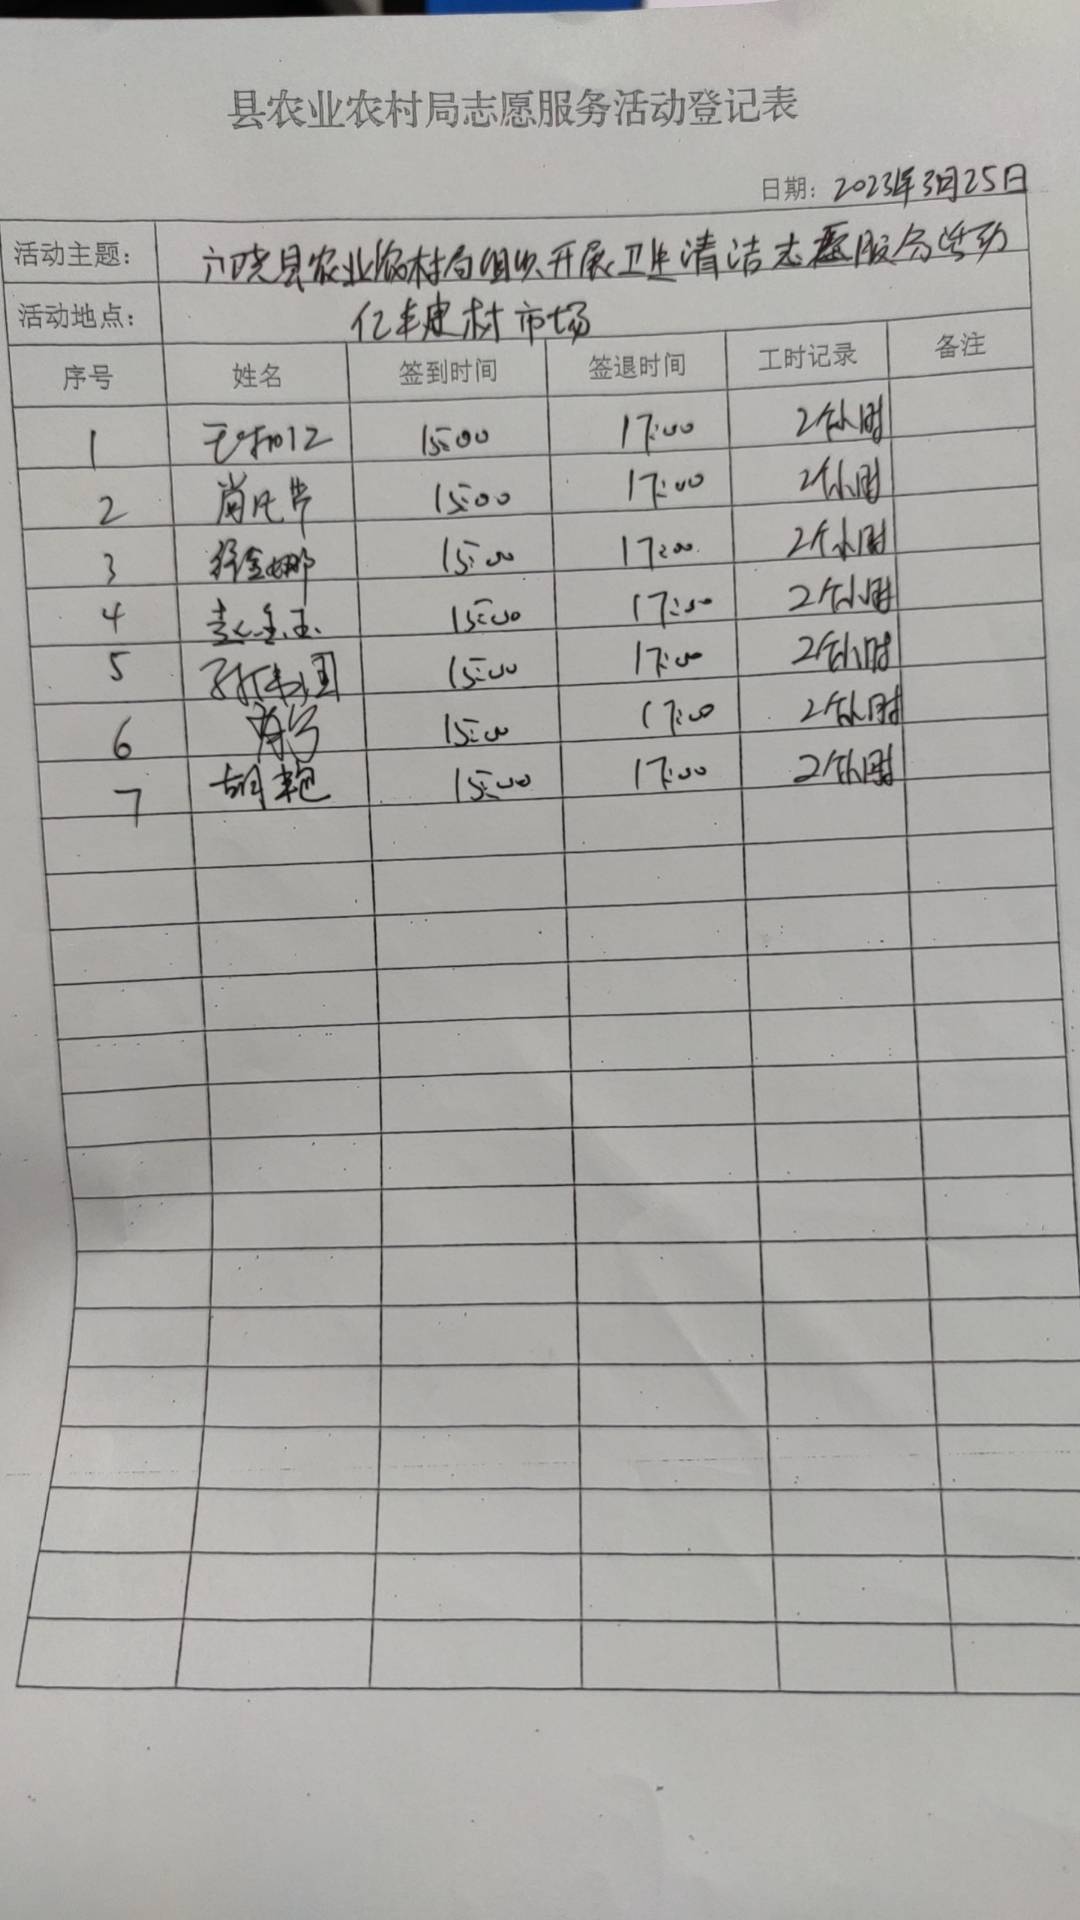 县农业农村局志愿服务活动登记表
日期：2023年3月25日
活动主题： 县农业农村局组织开展卫生清洁志愿服务活动
活动地点： 亿丰建材市场
序号 姓名 签到时间 签退时间 工时记录 备注
1 15:00 17:00 2个小时
2 15:00 17:00 2个小时
3 徐金娜 15:00 17:00 2个小时
4 15:00 17:00 2个小时
5 15:00 17:00 2个小时
6 15:00 17:00 2个小时
7 胡艳 15:00 17:00 2个小时